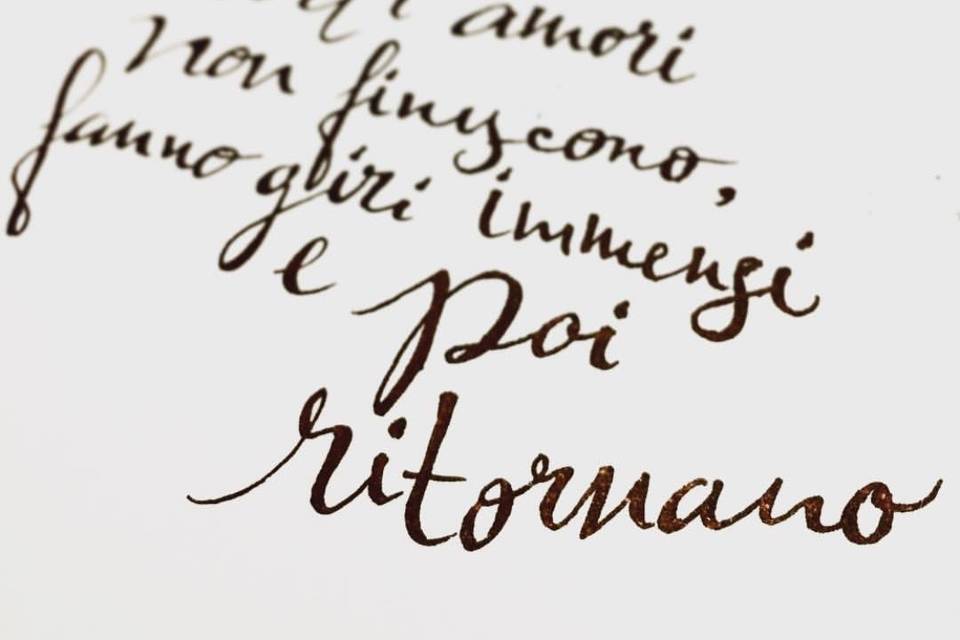 amori
non finiscono,
fanno giri immensi
e poi
ritornano